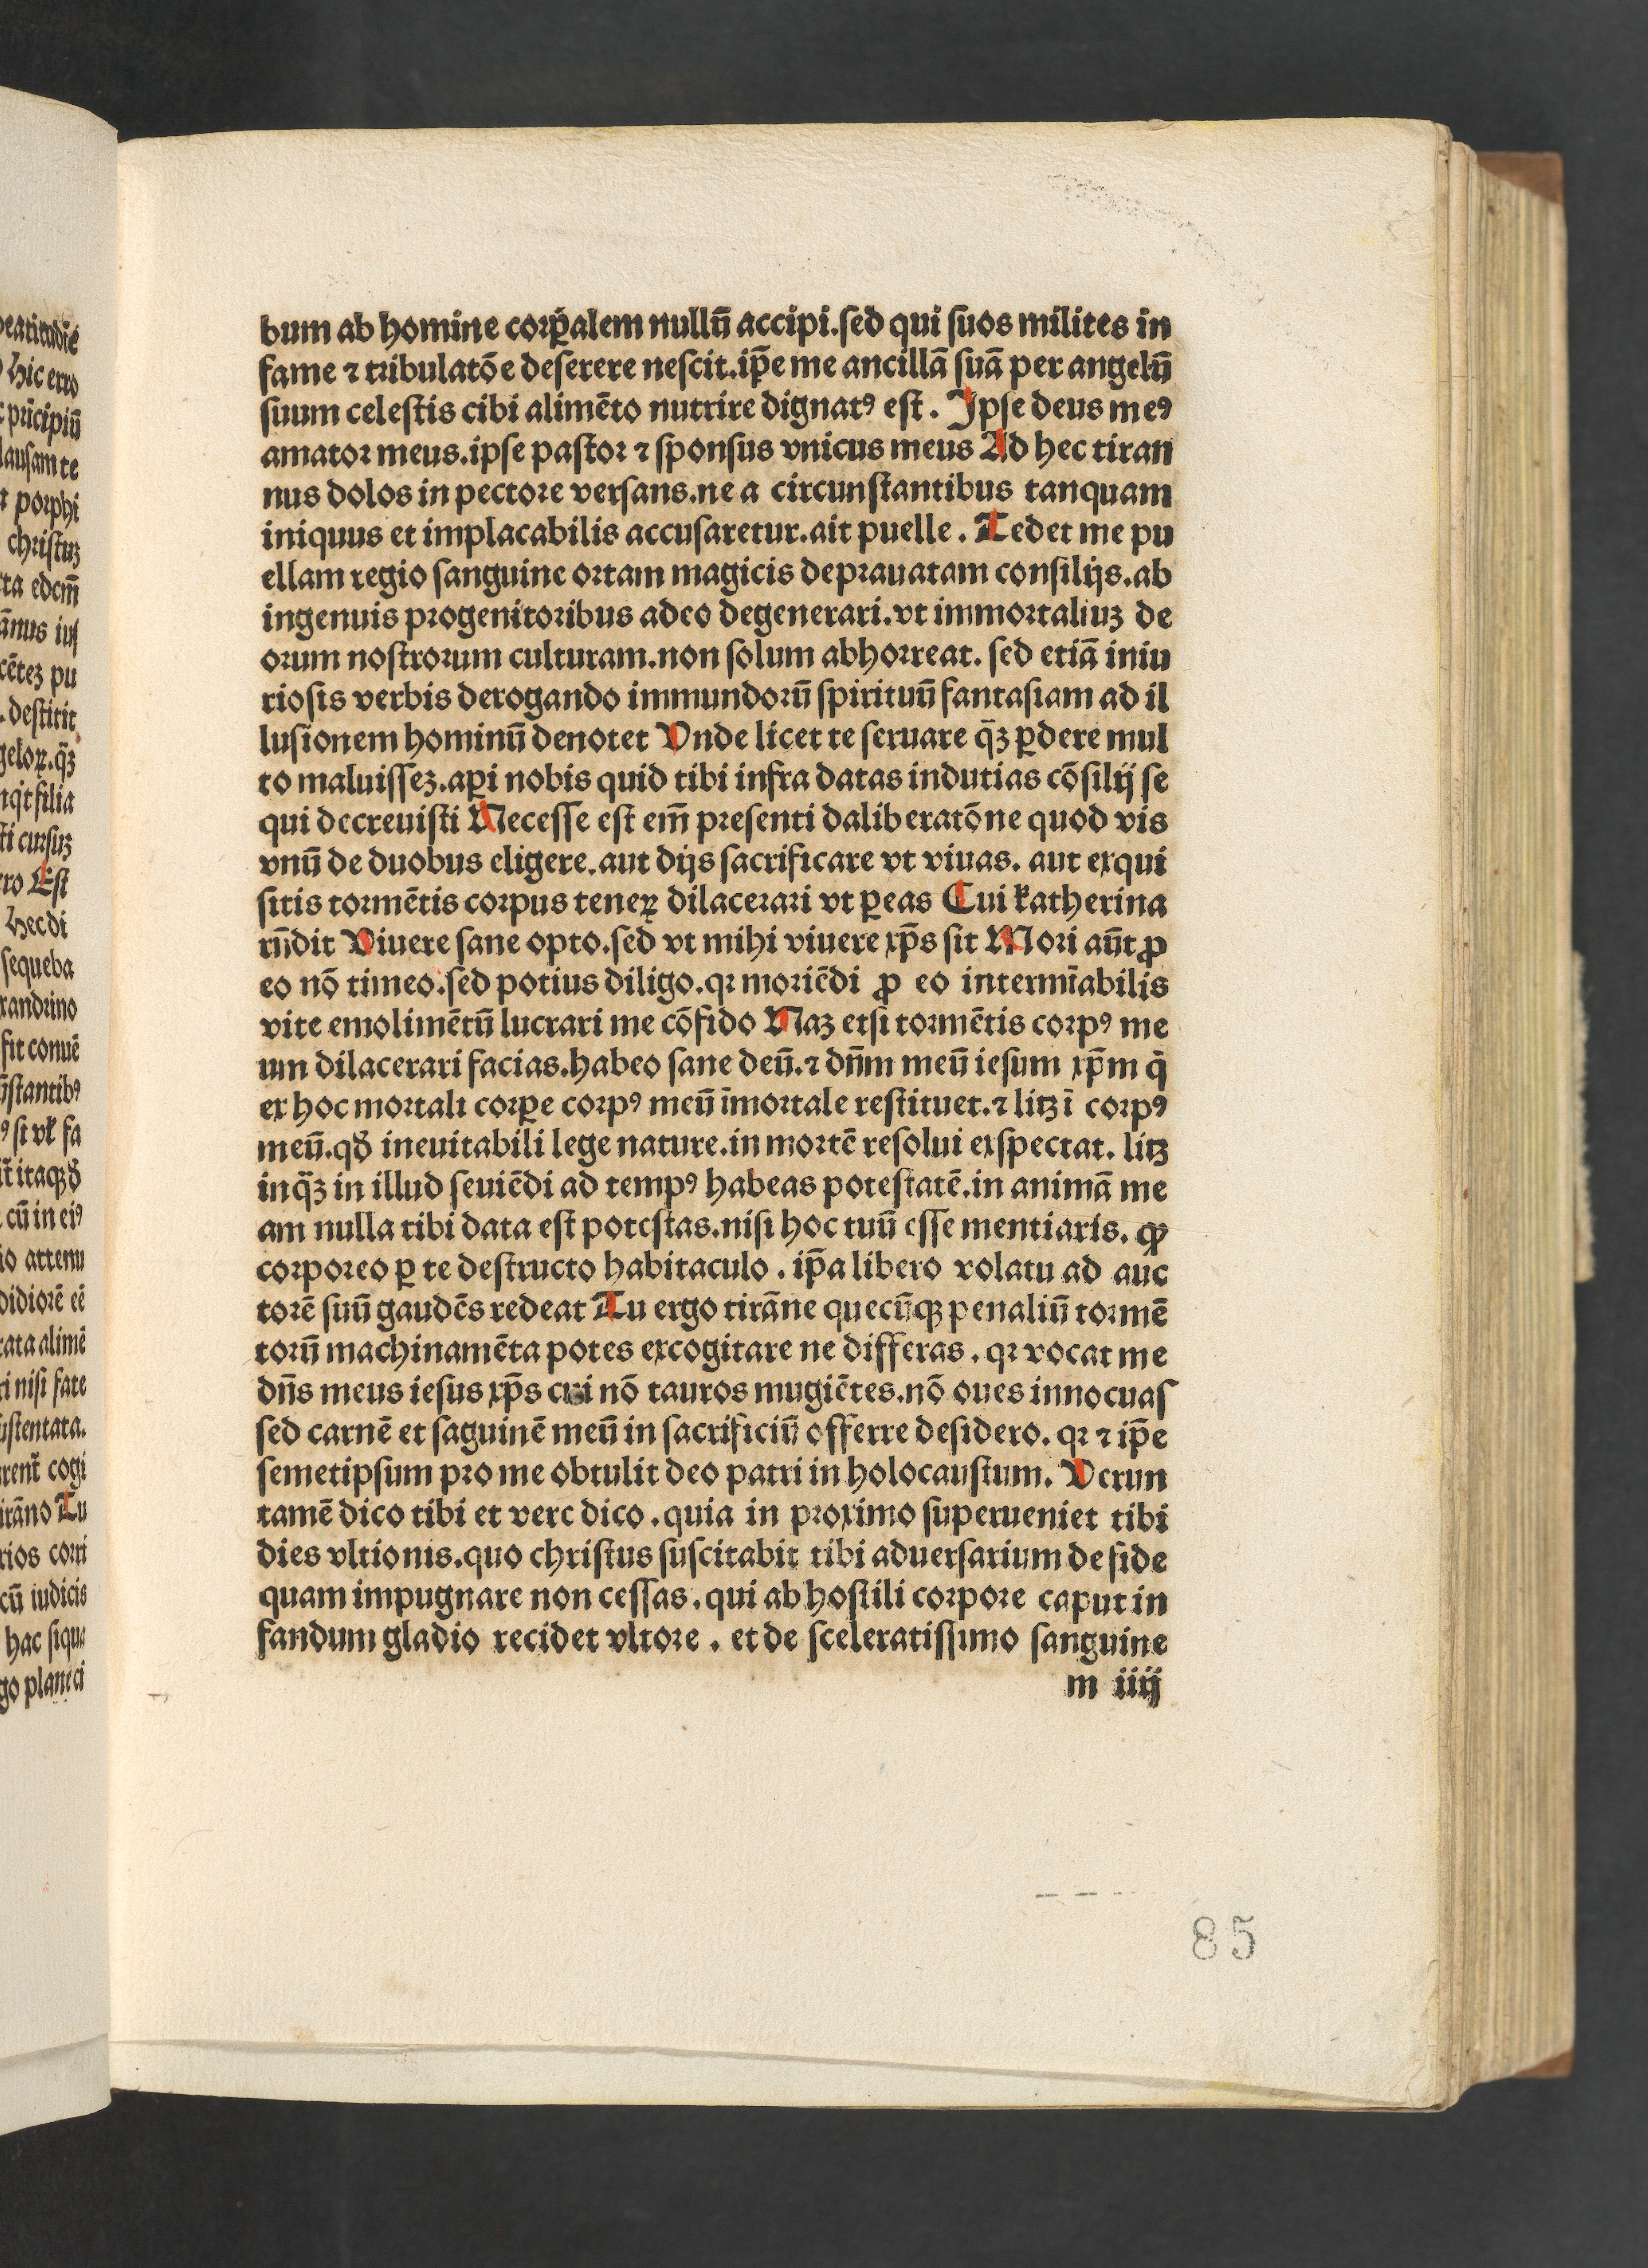 bum ab homine corꝑalem nullū accipi.sed qui suos milites in
fame ⁊ tribulatōe deserere nescit.ip̄e me ancillā suā per angelū
suum celestis cibi alimēto nutrire dignatꝰ est. Ipse deus meꝰ
amator meus.ipse pastor ⁊ sponsus vnicus meus Ad hec tiran
nus dolos in pectore versans.ne a circunstantibus tanquam
iniquus et implacabilis accusaretur.ait puelle. Tedet me pu
ellam regio sanguine ortam magicis deprauatam consilijs.ab
ingenuis progenitoribus adeo degenerari.vt immortaliuꝫ de
orum nostrorum culturam.non solum abhorreat. sed etiā iniu
riosis verbis derogando immundorū spirituū fantasiam ad il
lusionem hominū denotet Unde licet te seruare q̄ꝫ ꝑdere mul
to maluisseꝫ.aꝑi nobis quid tibi infra datas indutias cōsilij se
qui decreuisti Necesse est em̄ presenti daliberatōne quod vis
vnū de duobus eligere.aut dijs sacrificare vt viuas. aut exqui
sitis tormētis corpus teneꝝ dilacerari vt ꝑeas Cui katherina
rn̄dit Viuere sane opto.sed vt mihi viuere xp̄s sit Mori aūt ꝓ
eo nō timeo.sed potius diligo.qꝛ moriēdi ꝓ eo intermīabilis
vite emolimētū lucrari me cōfido Naꝫ etsi tormētis corpꝰ me
um dilacerari facias.habeo sane deū.⁊ dn̄m meū iesum xp̄m q̄
ex hoc mortali corꝑe corpꝰ meū īmortale restituet.⁊ litꝫ ī corpꝰ
meū.qđ ineuitabili lege nature.in mortē resolui exspectat. litꝫ
inq̄ꝫ in illud seuiēdi ad tempꝰ habeas potestatē.in animā me
am nulla tibi data est potestas.nisi hoc tuū esse mentiaris. ꝙ
corporeo ꝑ te destructo habitaculo. ip̄a libero volatu ad auc
torē suū gaudēs redeat Tu ergo tirāne quecūqꝫ penaliū tormē
torū machinamēta potes excogitare ne differas. qꝛ vocat me
dn̄s meus iesus xp̄s cui nō tauros mugiētes.nō oues innocuas
sed carnē et saguinē meū in sacrificiū offerre desidero. qꝛ ⁊ ip̄e
semetipsum pro me obtulit deo patri in holocaustum. Verun
tamē dico tibi et vere dico.quia in proximo superueniet tibi
dies vltionis.quo christus suscitabit tibi aduersarium de fide
quam impugnare non cessas.qui ab hostili corpore caput in
fandum gladio recidet vltore. et de sceleratissimo sanguine
m iiij
85